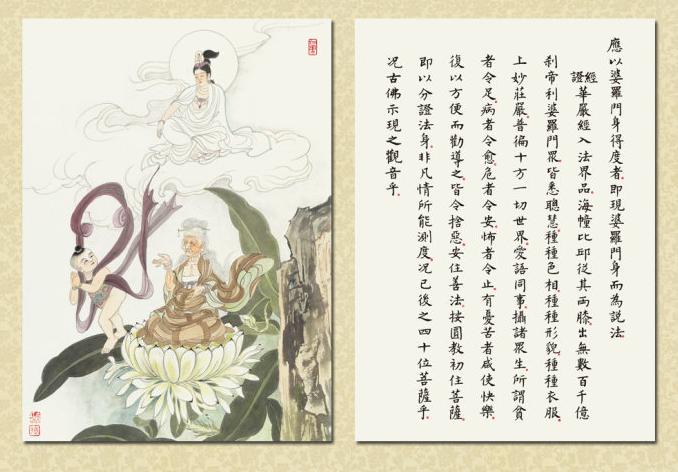 應以婆羅門身得度者即現婆羅門身而為說法
經證
華嚴經入法界品海幢比邱從其兩膝出無數百千億
刹帝利婆羅門眾皆悉聰慧種種色相種種形貌種種衣服
上妙莊嚴普徧十方一切世界愛語同事攝諸眾生所謂貧
者令足病者令愈危者令安怖者令止有憂苦者咸使快樂
復以方便而勸導之皆令捨惡安住善法按圓教初住菩薩
即以分證法身非凡情所能測度況已後之四十位菩薩乎
況古佛示現之觀音乎